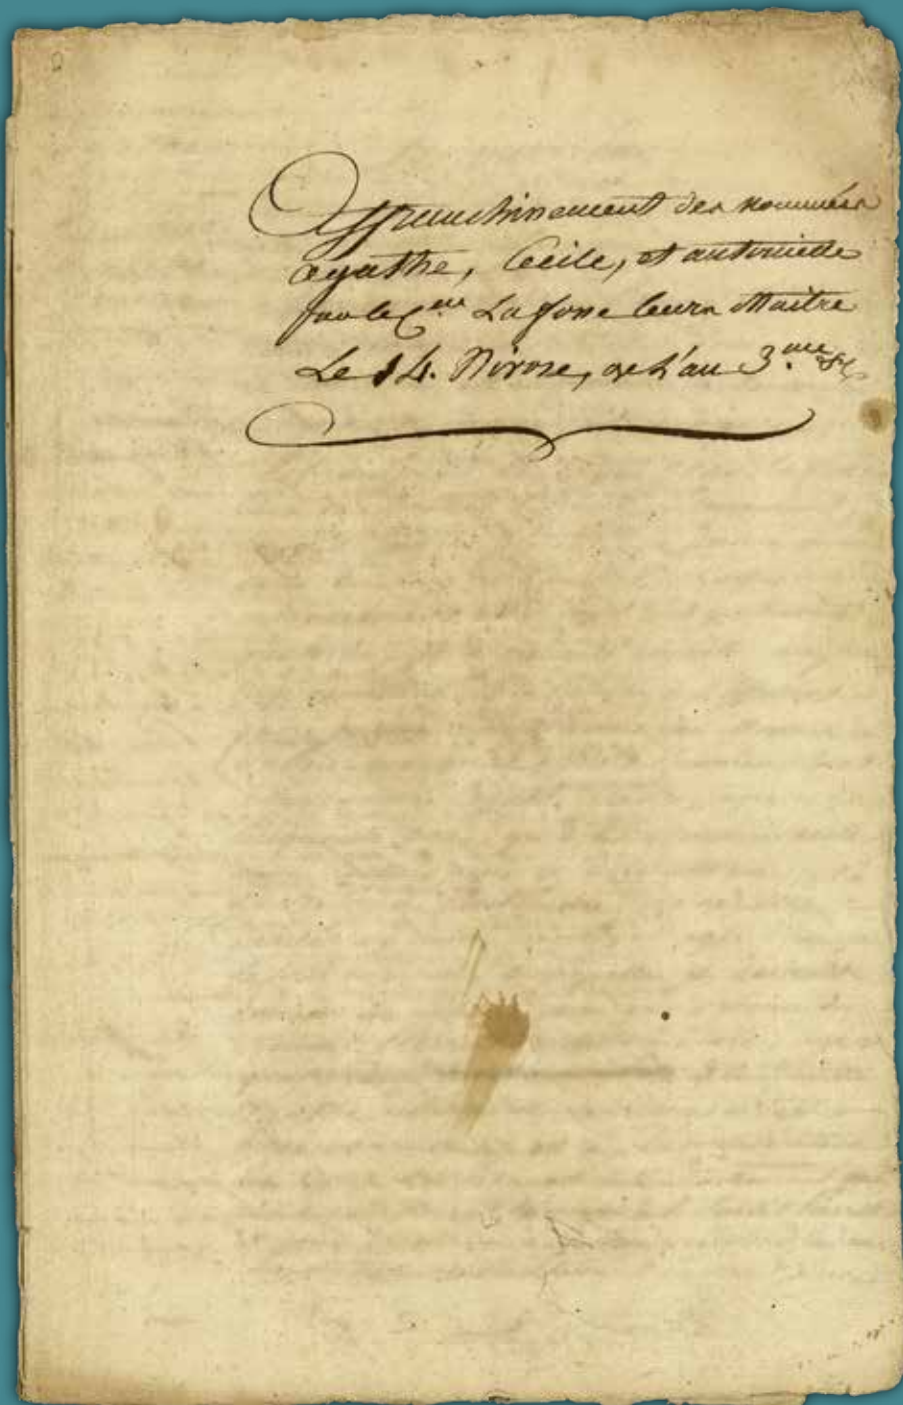 Affranchissement des nommées
agathe, Cécile, et antoinette
par le C.en Lafosse leur Maître
Le 14. Nivose, de L'an 3.me &c